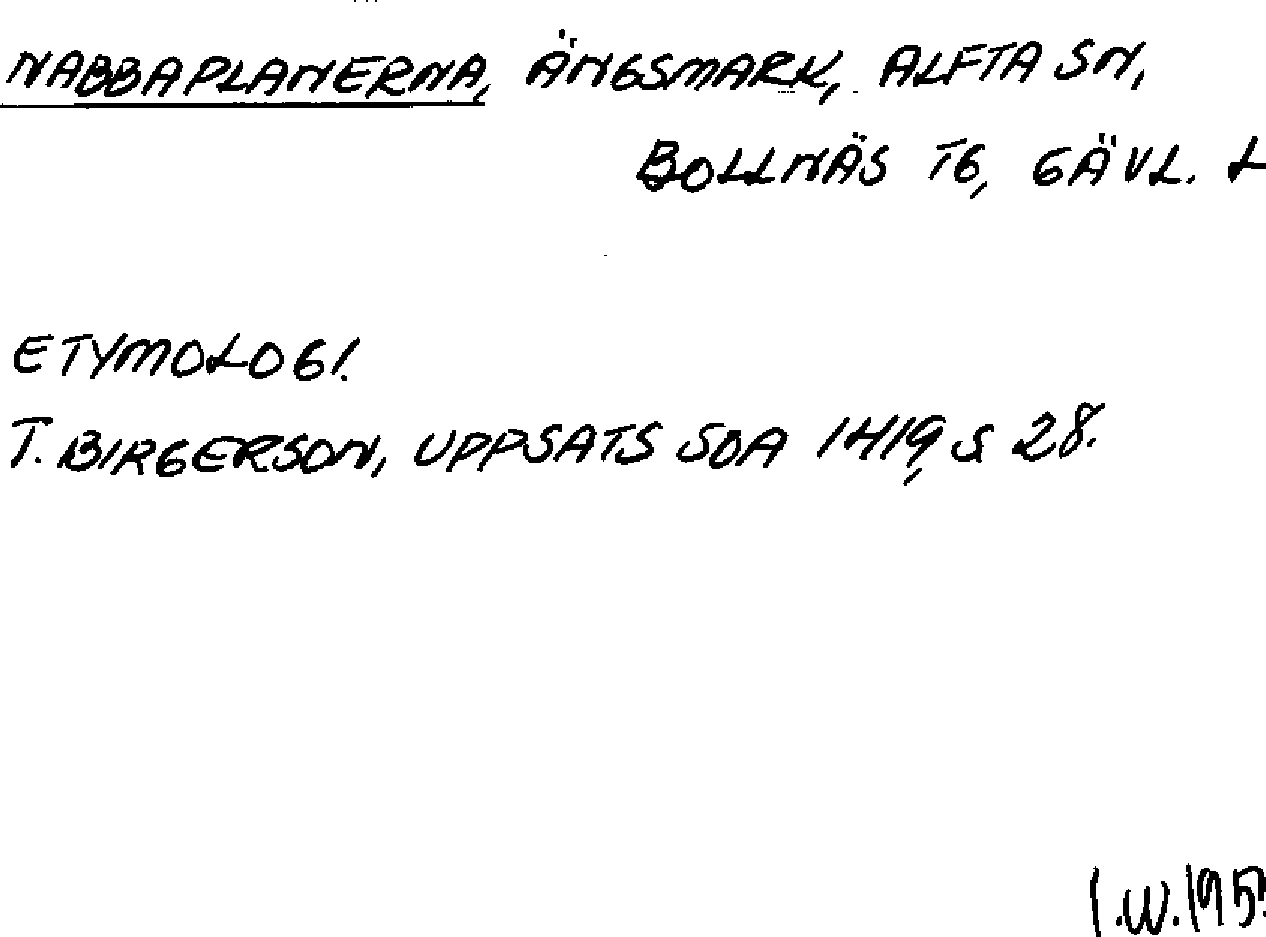 NABBAPLANERNA, ÄNGSMARK, ALFTA SN,
BOLLNÄS TG, GÄVL. L
ETYMOLOGI.
T. BIRGERSON, UPPSATS SOA 1419, S 28.
I.W. 195